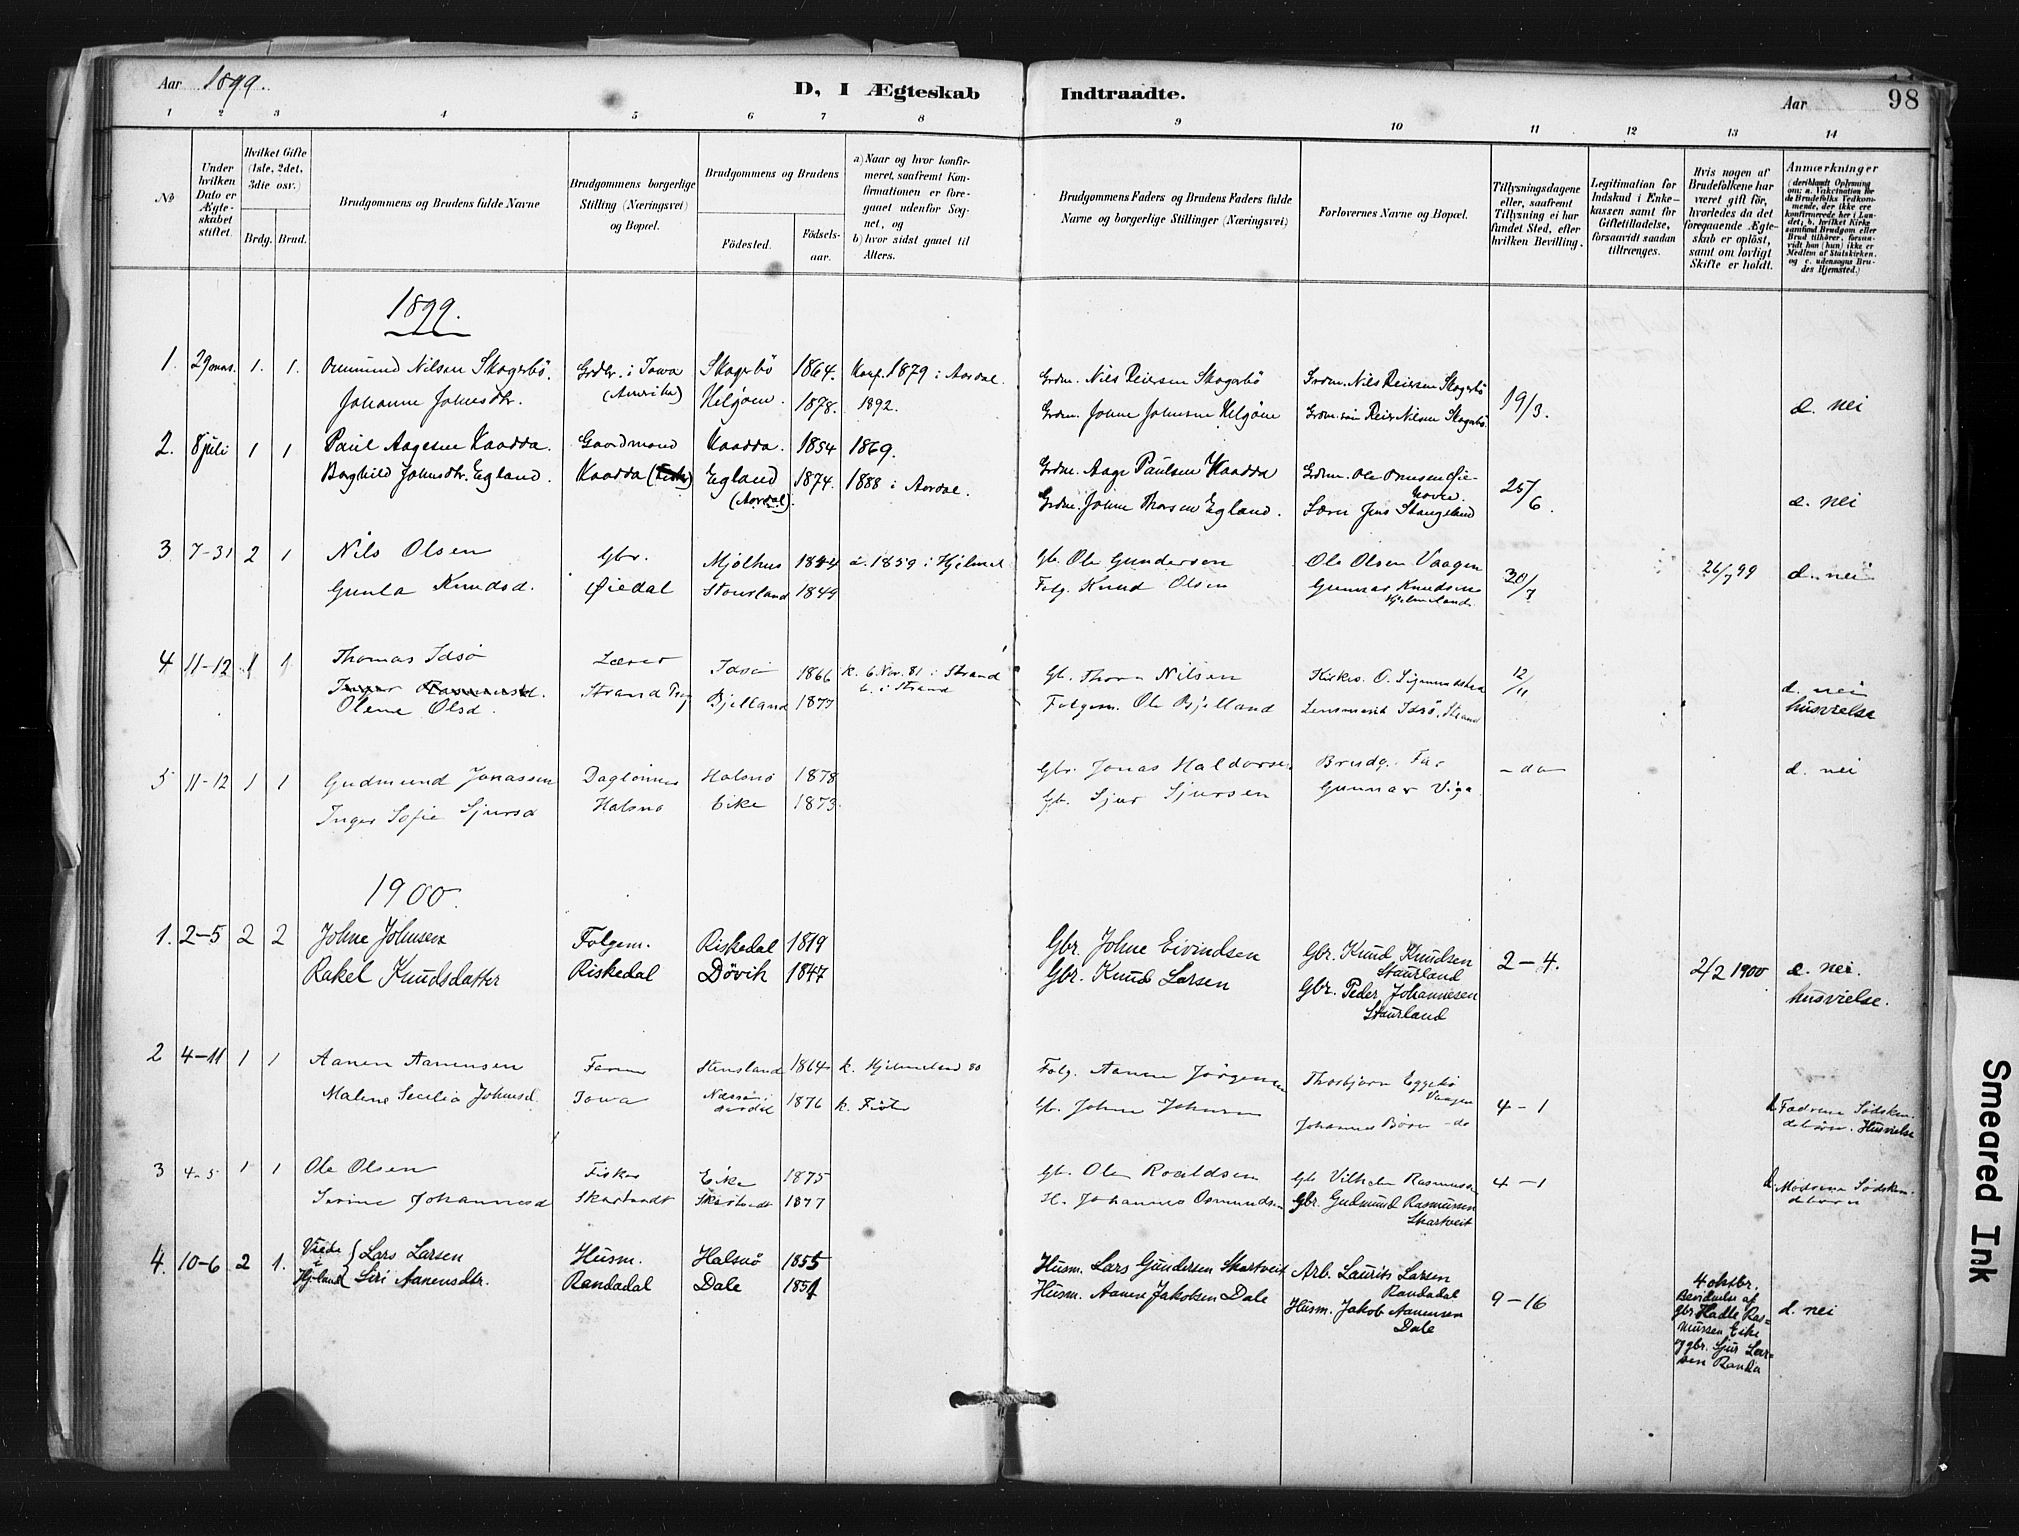 Aar 1899.
D, I Ægteskab Indtraadte.
Aar
98
1 2 3 4 5 6 7 8 9 10 11 12 13 14
№
Under hvilken Dato er Ægteskabet stiftet.
Hvilket Gifte (1ste, 2det, 3die osv.)
Brdg. Brud.
Brudgommens og Brudens fulde Navne
Brudgommens borgerlige Stilling (Næringsvei) og Bopæl.
Brudgommens og Brudens
Födested. Födselsaar.
a) Naar og hvor konfirmeret, saafremt Konfirmationen er foregaaet udenfor Sognet, og
b) hvor sidst gaaet til Alters.
Brudgommens Faders og Brudens Faders fulde Navne og borgerlige Stillinger (Næringsvei)
Forlovernes Navne og Bopæl.
Tillysningsdagene eller, saafremt Tillysning ei har fundet Sted, efter hvilken Bevilling.
Legitimation for Indskud i Enkekassen samt for Giftetilladelse, forsaavidt saadan tiltrænges.
Hvis nogen af Brudefolkene har været gift för, hvorledes da det foregaaende Ægteskab er oplöst, samt om lovligt Skifte er holdt.
Anmærkninger (deriblandt Oplysning om: a. Vakcination for de Brudefolks Vedkommende, der ikke ere konfirmerede her i Landet; b. hvilket Kirkesamfund Brudgom eller Brud tilhörer, forsaavidt han (hun) ikke er Medlem af Statskirken. og c. udensogns Brudes Hjemsted.)
1899.
1. 29 mars. 1. 1. Osmund Nilsen Skogerbö. Grdbr. i Iowa Skogerbö 1864. Konf. 1879 i Aardal. Grdm. Nils Reiersen Skogerbö Grdm. Nils Reiersen Skogerbö 19/3.
Johanne Johnsdtr. (Amerika) Helgöen. 1878. 1892. Grdm. Johne Johnsen Helgöen Grdm. sön Reier Nilsen Skogerbö. d. nei
2. 8 juli 1 1 Paul Aagesen Kaadda. Gaardmand Kaadda. 1854 1869. Grdm. Aage Paulsen Kaadda Grdm. Ole
Borghild Johnsdtr. Egland. Kaadda (Fister) Egland (Aardal). 1874. 1888 i Aardal. Grdm. Johne Thorsen Egland. Lærer Jens Stangeland 25/6. d. nei
3 7-31 2 1 Nils Olsen Gbr. Mjölhus 1844 d. 1859 i Hjelmel Gb. Ole Gunderson Ole Olsen Vaagen 30/7 26/7 99 d. nei
Gunla Knudsd. Öiedal Stourland 1849 Folg. Knud Olsen Gunnar Knudsen Hjelmeland.
4 11-12 1 1 Thomas Idsö Lærer Idsö 1866 k. 6 Nov. 81 i Strand Gb. Thore Nilsen Kirkes. O. Sigmundstad 12/11
Olene Olsd. Strand Prg Bjelland 1877 b. i Strand Folgem. Ole Bjelland Lensmand Idsö, Strand d. nei husvielse
5 11-12 1 1 Gudmund Jonassen Daglönner Halsnö 1878 Gbr. Jonas Haldorsen Brudg. Far - do - d. nei
Inger Sofie Sjursd Halsnö Eike 1873. Gb. Sjur Sjursen Gunnar Viga
1900.
1. 2-5 2 2 Johne Johnsen Folgem. Riskedal 1819 Gbr. Johne Eivindsen Gbr. Knud Knudsen Staurland 2-4. 2/2 1900 d. nei. husvielse.
Rakel Knudsdatter Riskedal Dövik 1847 Gbr. Knud Larsen Gbr. Peder Johannesen Staurland
2 4-11 1 1 Aanen Aanensen Farm Stensland 1864 k. Hjelmeland 80 Folg. Aanen Jörgensen Thorbjörn Eggebö Vaagen 4-1
Malene Secilia Johnsd. Iowa Næssöi Aardal 1876 k. Fister Gb. Johne Johnsen Johannes -do d. Fædrene Södskendebörn. Husvielse
3 4-5 1 1 Ole Olsen Fisker Eike 1875 Gb. Ole Roaldsen Gb. Vilhelm Rasmussen 4-1 d. Modrene Södskendebörn
Serine Johannesd Skartvedt Skartvedt 1877 H. Johannes Osmundsen Gbr. Gudmund Rasmussen Skartveit
4. 10-6 2 1. Viede i Hjland Lars Larsen Husm. Halsnö 1855 Husm. Lars Gundersen Skartveit Arb. Laurits Larsen Randadal 9-16 4 oktbr. Bevidnelse af gbr. Hadle Rasmussen Eike og gbr. Sjur Larsen Randa d. nei
Siri Aanensdtr. Randadal Dale 1851 Husm. Aanen Jakobsen Dale Husm. Jakob Aanensen Dale
Smeared Ink